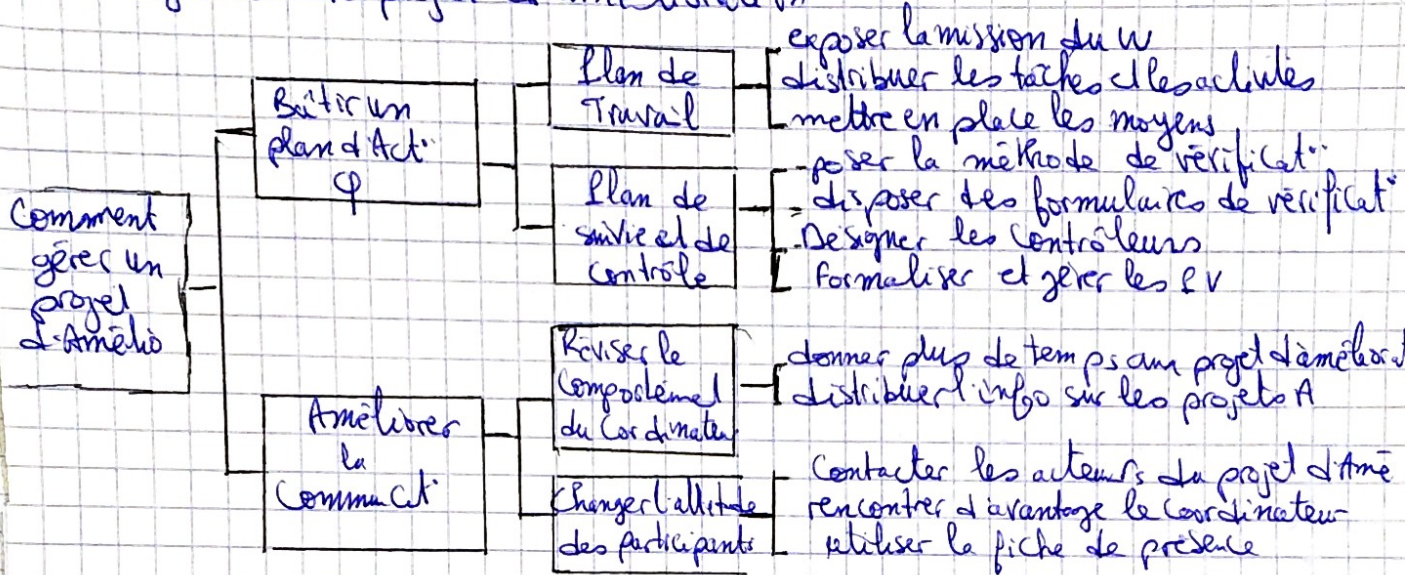 Comment
gérer un
projet
d'Amélio
Bâtir un
plan d'Act°
φ
Améliorer
la
Communcat°
Plan de
Travail
Plan de
suivie et de
Contrôle
Réviser le
Comportemet
du Cordinateu
Changer l'attitude
des participants
exposer la mission du W
distribuer les tâches & les activités
mettre en place les moyens
- poser la méthode de vérificat°
- disposer des formulaires de vérificat°
- Designer les Contrôleurs
Formaliser et gérer les PV
donner plus de temps aux projet d'améliorat
distribuer l'info sur les projets A
Contacter les acteurs du projet d'Amé
rencontrer d'avantage le Coordinateur
utiliser la fiche de présence